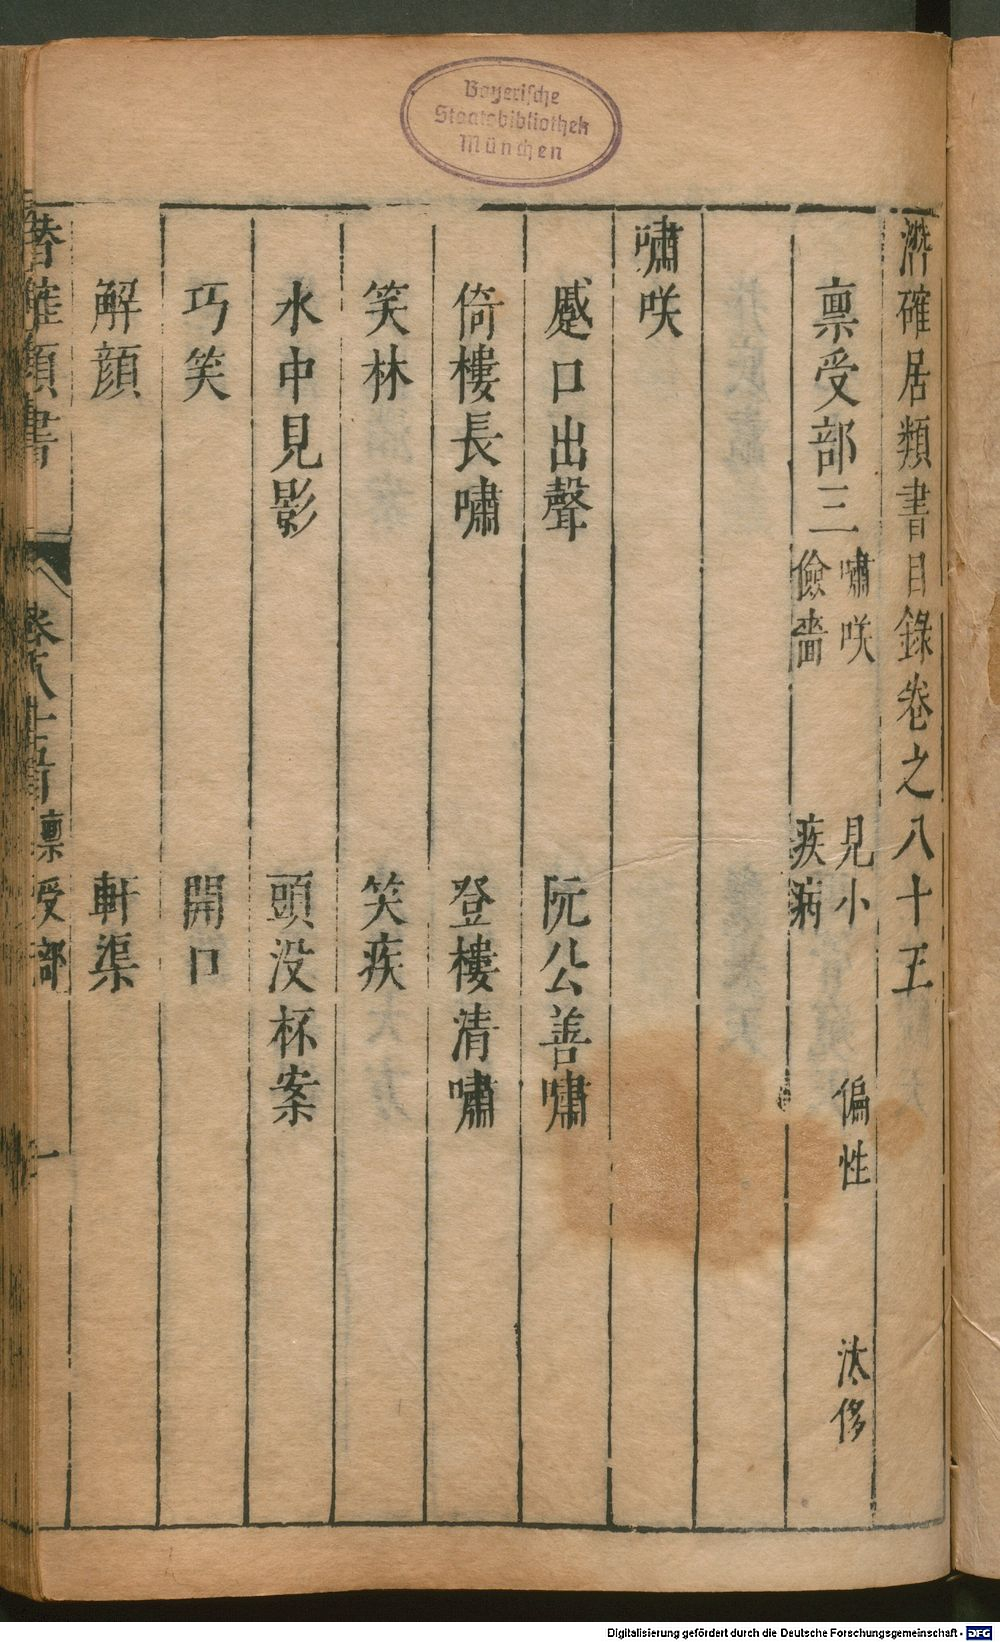 Bayerische
Staatsbibliothek
München
濳確居類書目錄卷之八十五
稟受部三
嘯咲 見小 偏性 汰侈
儉嗇 疾病
嘯咲
蹙口出聲 阮公善嘯
倚樓長嘯 登樓清嘯
笑林 笑疾
水中見影 頭没杯案
巧笑 開口
解顔 軒渠
確類書 卷八十五 稟受部 一
Digitalisierung gefördert durch die Deutsche Forschungsgemeinschaft - DFG